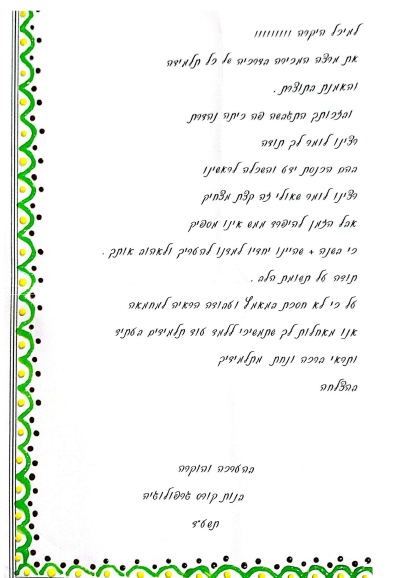 למיכל היקרה !!!!!!!!!
את מרצה המכירה בדרכיה של כל תלמידה
והאמנת בתוצרת.
ובזכותך התגבשה פה כיתה נהדרת
רצינו לומר לך תודה
בהם הכנסת ידע והשכלה לראשינו
רצינו לומר שאולי זה קצת מצחיק
אבל הזמן להיפרד ממש אינו מספיק
כי בשנה + שהיינו יחדיו למדנו להעריך ולאהוב אותך.
תודה על תשומת הלב.
על כי לא חסכת במאמץ ועבודה הראיה למחמאה
אנו מאחלות לך שתמשיכי ללמד עוד תלמידים בעתיד
ותראי ברכה ונחת מתלמידיך
בהצלחה
בהערכה והוקרה
בנות קורס גרפולוגיה
תשע"ד